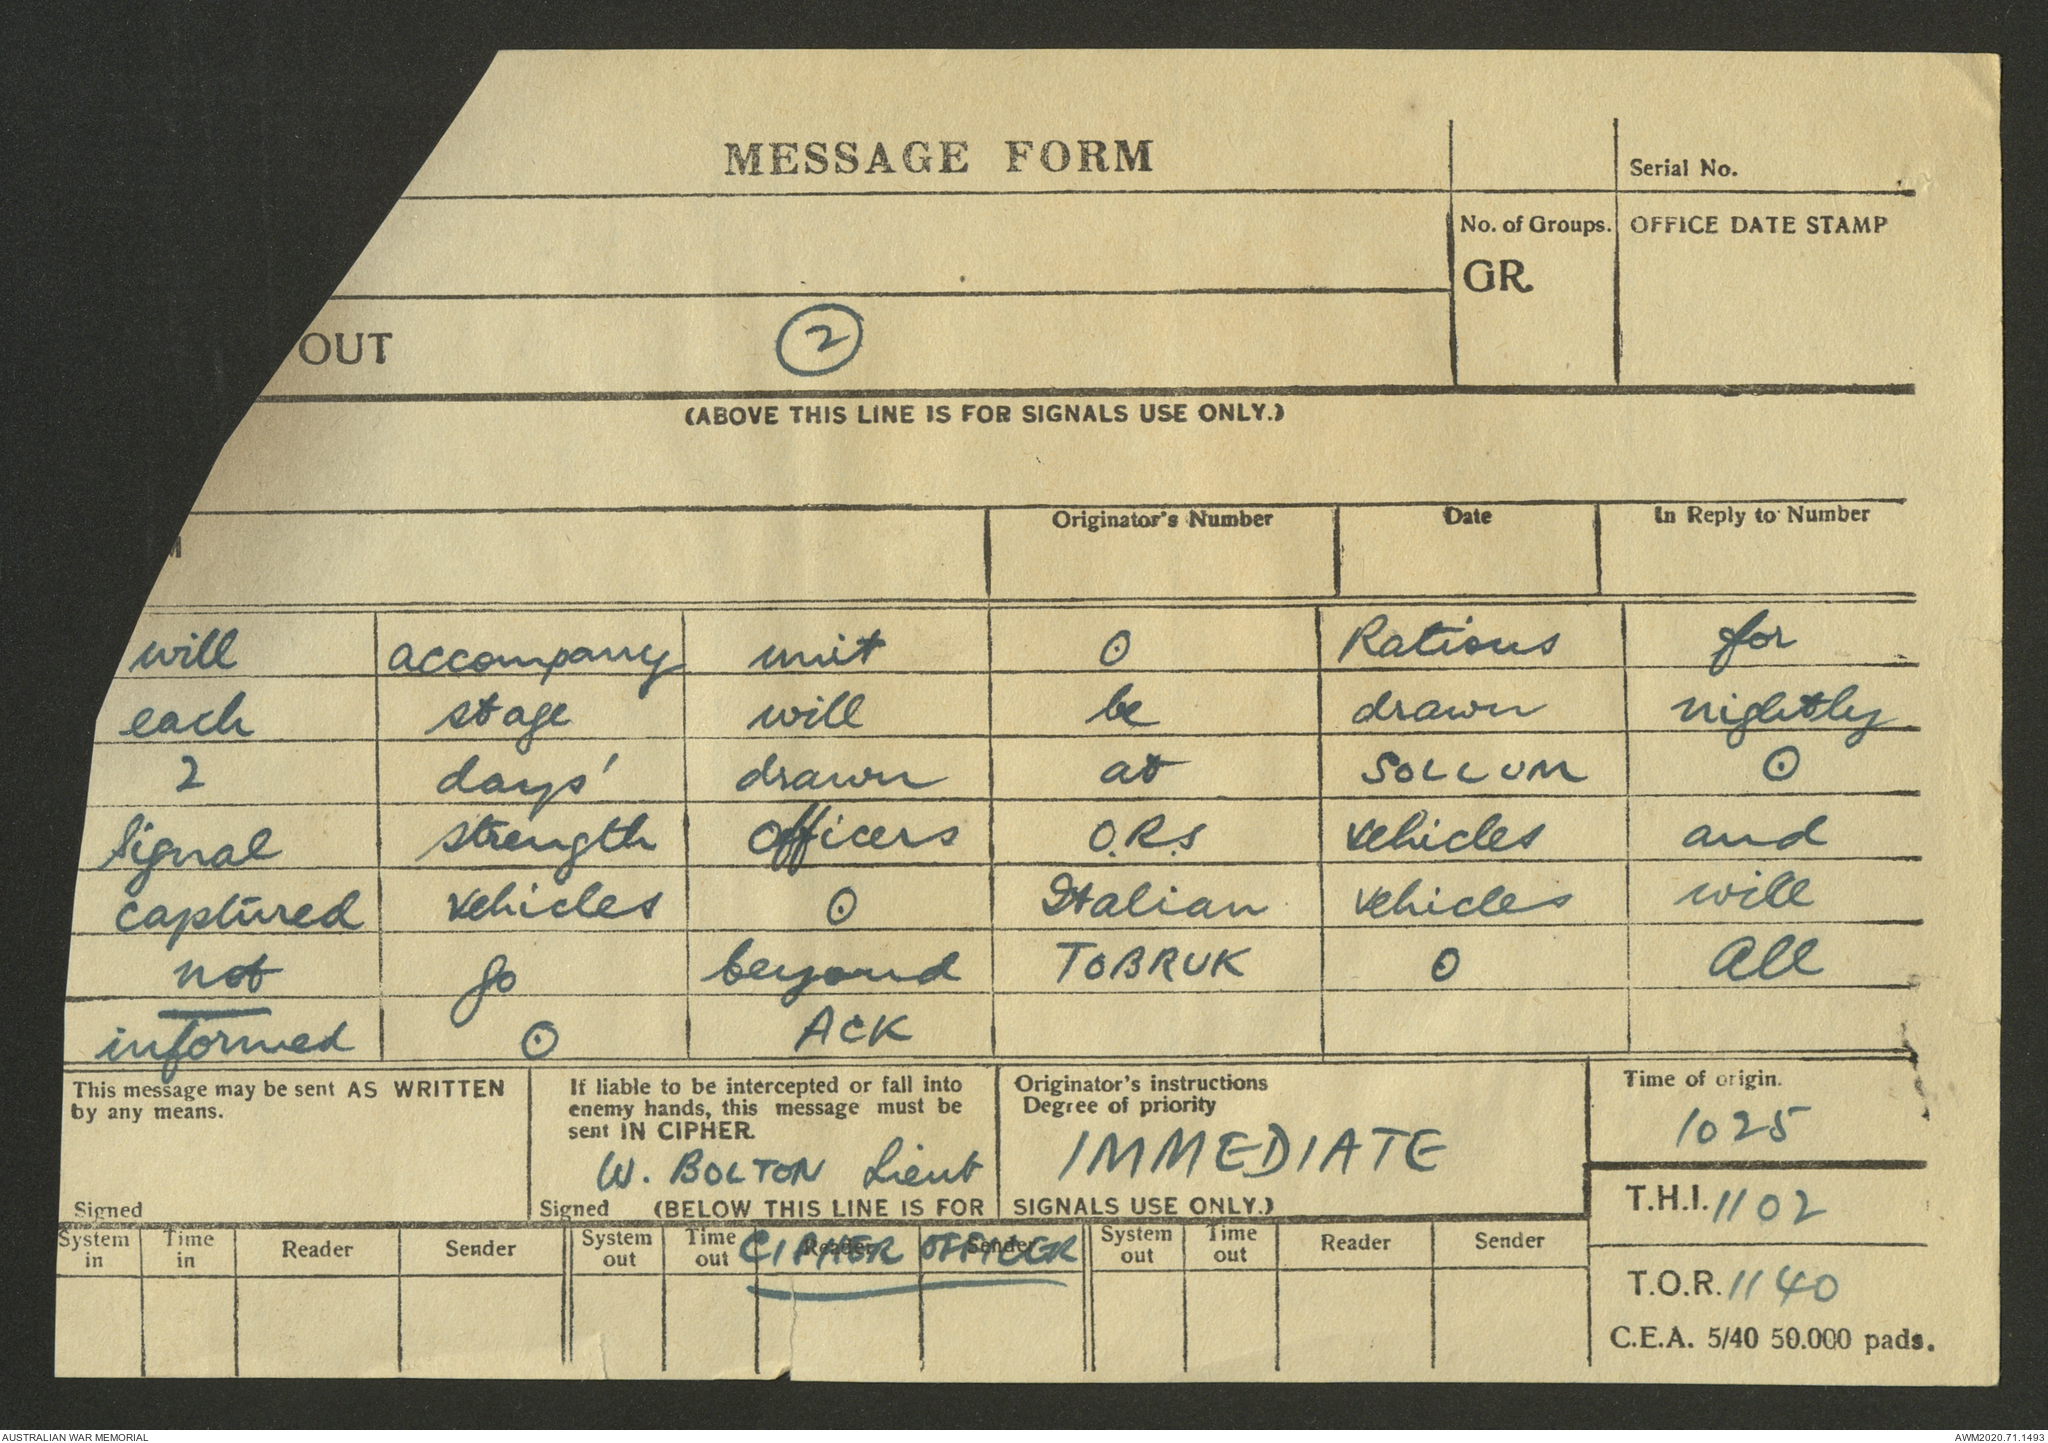 MESSAGE FORM
Serial No.
No. of Groups. OFFICE DATE STAMP
GR.
OUT 2
(ABOVE THIS LINE IS FOR SIGNALS USE ONLY.)
M Originator's Number Date In Reply to Number
will accompany unit ⊙ Rations for
each stage will be drawn nightly
2 days' drawn at SOLLUM ⊙
Signal strength Officers O.R.s vehicles and
captured vehicles ⊙ Italian vehicles will
not go beyond TOBRUK ⊙ All
informed ⊙ ACK
This message may be sent AS WRITTEN
by any means.
Signed
If liable to be intercepted or fall into
enemy hands, this message must be
sent IN CIPHER.
W. BOLTON Lieut
Signed
Originator's instructions
Degree of priority
IMMEDIATE
(BELOW THIS LINE IS FOR SIGNALS USE ONLY.)
CIPHER OFFICER
Time of origin.
1025
T.H.I. 1102
T.O.R. 1140
System in Time in Reader Sender System out Time out Reader Sender System out Time out Reader Sender
C.E.A. 5/40 50.000 pads.
AUSTRALIAN WAR MEMORIAL AWM2020.71.1493